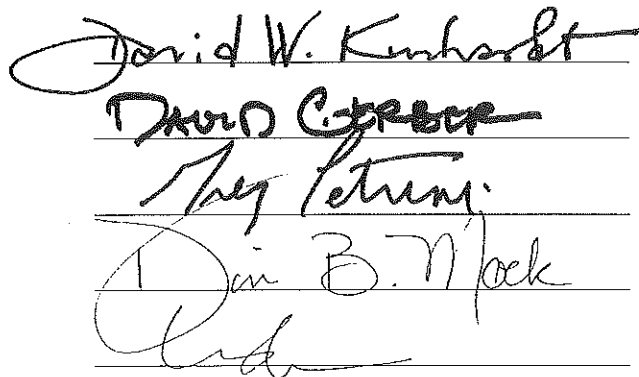 David W. Kunhardt
DAVID GERBER
Greg Petrini
B. Mock